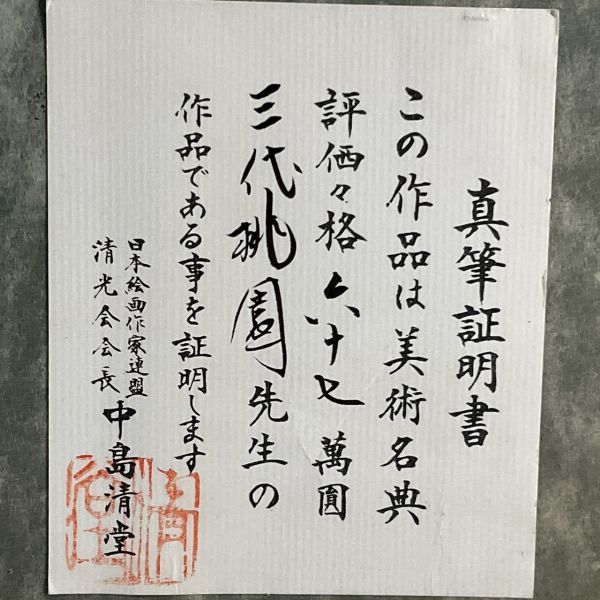 真筆証明書
この作品は美術名典
評価々格六十七萬圓
三代桃園先生の
作品である事を証明します
日本絵画作家連盟
清光会会長 中島清堂